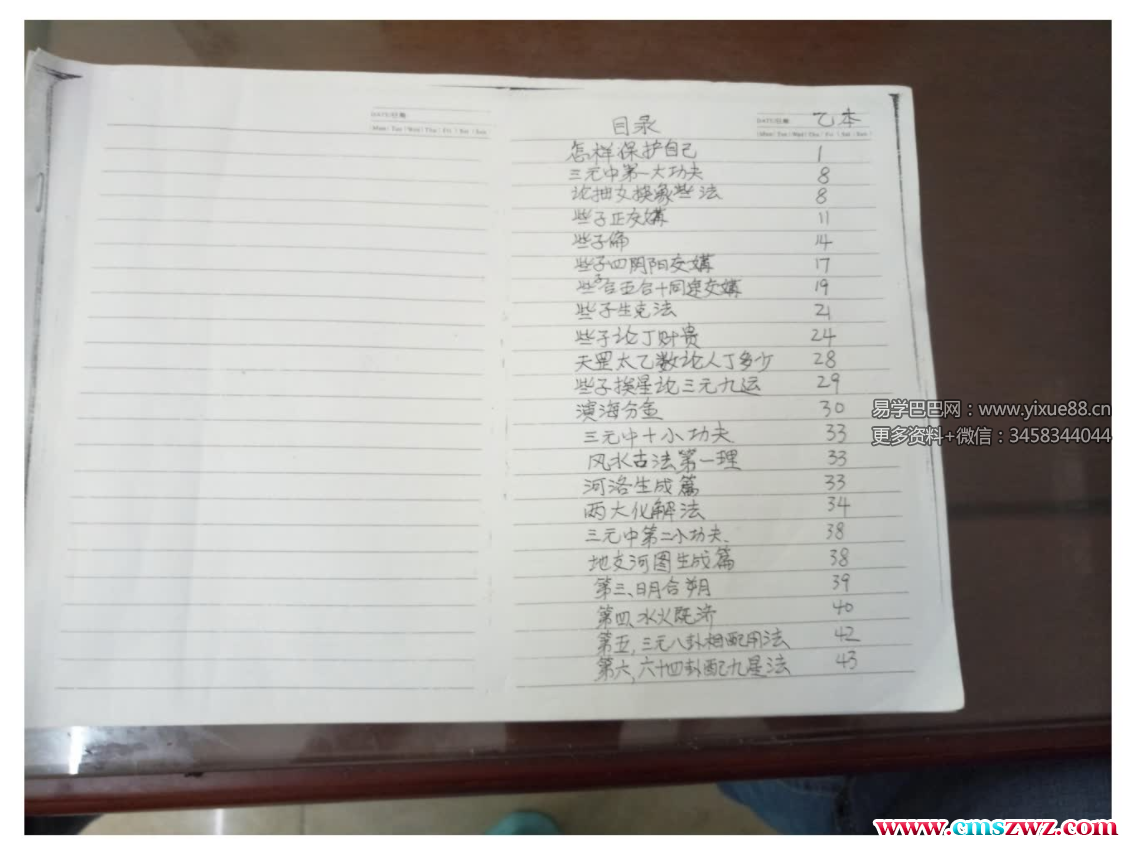 DATE/日期:
Mon Tue Wed Thu Fri Sat Sun
DATE/日期: 乙本
Mon Tue Wed Thu Fri Sat Sun
目录
怎样保护自己 1
三元中第一大功夫 8
论抽爻换象些法 8
些子正交媾 11
些子偏 14
些子四阴阳交媾 17
些子合五合十同途交媾 19
些子生克法 21
些子论丁财贵 24
天罡太乙数论人丁多少 28
些子挨星论三元九运 29
演海分金 30
三元中十小功夫 33
风水古法第一理 33
河洛生成篇 33
两大化解法 34
三元中第二小功夫、 38
地支河图生成篇 38
第三、日月合朔 39
第四、水火既济 40
第五,三元八卦相配用法 42
第六,六十四卦配九星法 43
易学巴巴网:www.yixue88.cn
更多资料+微信:3458344044
www.cmszwz.com